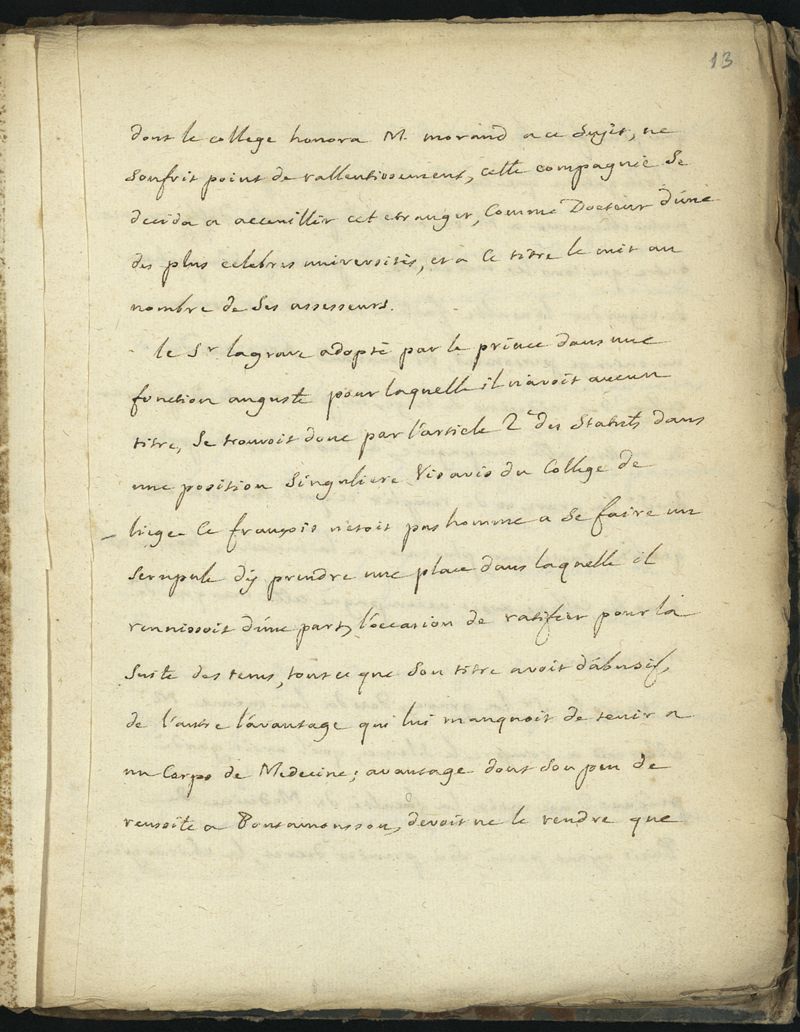 13
dont le college honora M. morand a ce Sujet, ne
Soufrit point de rallentissement, cette compagnie Se
decida a acceuillir cet etranger, Comme Docteur d'une
des plus celebres universités, et a Ce titre le mit au
nombre de Ses assesseurs.
le Sr lagrave adopté par le prince dans une
fonction auguste pour laquelle il n'avoit aucun
titre, Se trouvoit donc par l'article 2e des Statuts dans
une position Singuliere Vis avis du College de
liege Ce françois n'etoit pas homme a Se faire un
Scrupule d'y prendre une place dans laquelle il
reunissoit d'une part, l'occasion de ratifier pour la
Suite des tems, tout ce que Son titre avoit d'abusif,
de l'autre l'avantage qui lui manquoit de tenir a
un Corps de Medecine; avantage dont Son peu de
reussite a Pontamousson, devoit ne le rendre que